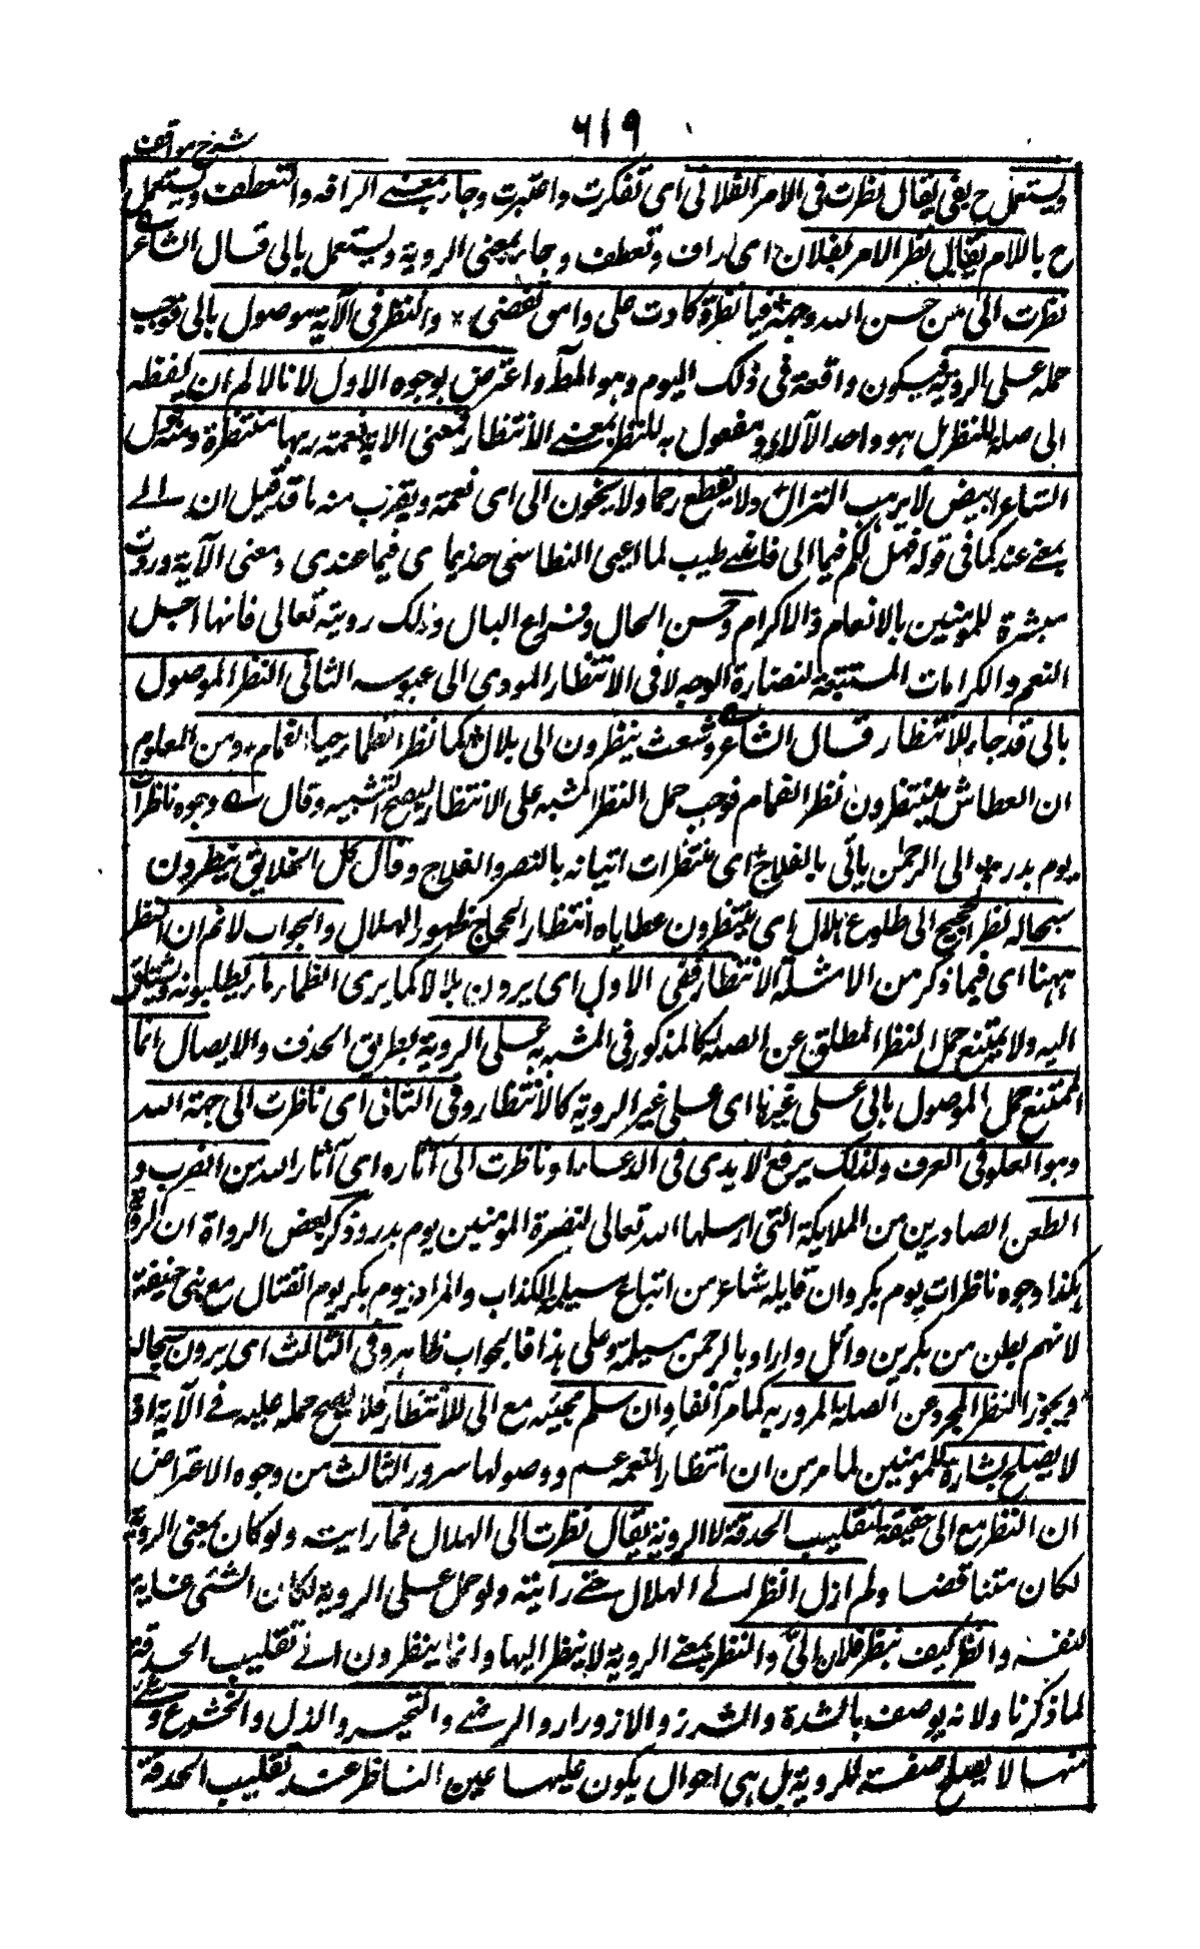 ٦١٩
شرح مواقف
ويستعمل ح بفى يقال نظرت فى الامر الفلانى اى تفكرت واعتبرت وجاء بمعنى الرافة والتعطف ويستعمل
ح باللام يقال نظر الامير لفلان اى راف وتعطف وجاء بمعنى الروية ويستعمل بالى قال الشاعر
نظرت الى من حسن الله وجهه فيا نظرة كادت على وامق تقضى والنظر فى الآية موصول بالى فوجب
حمله على الروية فيكون واقعة فى ذلك اليوم وهو المط واعترض بوجوه الاول لا نا لا نم ان لفظه
الى صلة للنظر بل هو واحد الآلاء ومفعول به للنظر بمعنى الانتظار فمعنى الاية نعمة ربها منتظرة ومنه قول
الشاعر ابيض لا يرهب النزال ولا يقطع رحما ولا يخون الى اى نعمة ويقرب منه ما قد قيل ان الى
بمعنى عند كما فى قوله فهل لكم فيما الى فاننى طبيب لما اعيى النطاسى حذيما اى فيما عندى ومعنى الآية ورود
مبشرة للمومنين بالانعام والاكرام وحسن الحال وفراغ البال وذلك روية تعالى فانها اجل
النعم والكرامات المستتبعة لنضارة الوجه لا فى الانتظار المودى الى عبوسه الثانى النظر الموصول
بالى قد جاء للانتظار قال الشاعر وشعث ينظرون الى بلال كما نظر الظماء حيا الغمام ومن المعلوم
ان العطاش ينتظرون نظر الغمام فوجب حمل النظر المشبه على الانتظار ليصح التشبيه وقال وجوه ناظرات
يوم بدر الى الرحمن ياتى بالفلاح اى منتظرات اتيانه بالنصر والفلاح وقال كل الخلايق ينظرون
سجاله نظر الحجيج الى طلوع هلال اى ينتظرون عطاياه انتظار الحجاج ظهور الهلال والجواب لا نم ان النظر
ههنا اى فيما ذكر من الامثلة للانتظار ففى الاول اى يرون بلالا كما يرى الظماء ماء يطلبونه ويشتاق
اليه ولا يمتنع حمل النظر المطلق عن الصلة كالمذكور فى المشبه به على الروية بطريق الحذف والايصال انما
الممتنع حمل الموصول بالى على غيرها اى على غير الروية كالانتظار وفى الثانى اى ناظرت الى جهة الله
وهو العلو فى العرف ولذلك يرفع الايدى فى الدعاء او ناظرت الى آثاره اى آثار الله من الضرب و
الطعن الصادرين من الملايكة التى ارسلها الله تعالى لنصرة المومنين يوم بدر وذكر بعض الرواة ان الرواية
هكذا وجوه ناظرات يوم بكر وان قايله شاعر من اتباع مسيلمة الكذاب والمراد بيوم بكر يوم القتال مع بنى حنيفة
لانهم بطن من بكر بن وائل واراد بالرحمن مسيلمة وعلى هذا فالجواب ظاهر وفى الثالث اى يرون سجاله
ويجوز النظر المجرد عن الصلة بالمرويه كما مر آنفا وان سلم مجيئه مع الى للانتظار فلا يصح حمله عليه فى الآية اذ
لا يصلح بشارة للمومنين لما مر من ان انتظار النعمة غم ووصولها سرور الثالث من وجوه الاعتراض
ان النظر مع الى حقيقة لتقليب الحدقة لا الروية يقال نظرت الى الهلال فما رايت ولو كان بمعنى الروية
لكان متناقضا ولم ازل انظر الى الهلال حتى رايته ولو حمل على الروية لكان الشئ غاية
لنفسه وانظر كيف ينظر فلان الىّ والنظر بمعنى الروية لا ينظر اليها وانما ينظرون الى تقليب الحدقة
لما ذكرنا ولانه يوصف بالشدة والشزر والازورار والرضى والتحير والذل والخشوع وشئ
منها لا يصلح صفة للروية بل هى احوال يكون عليها عين الناظر عند تقليب الحدقة